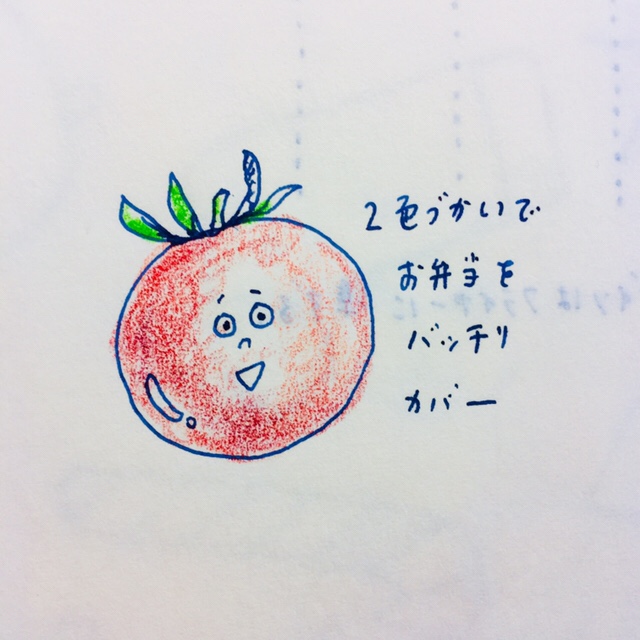 2色づかいで
お弁当を
バッチリ
カバー